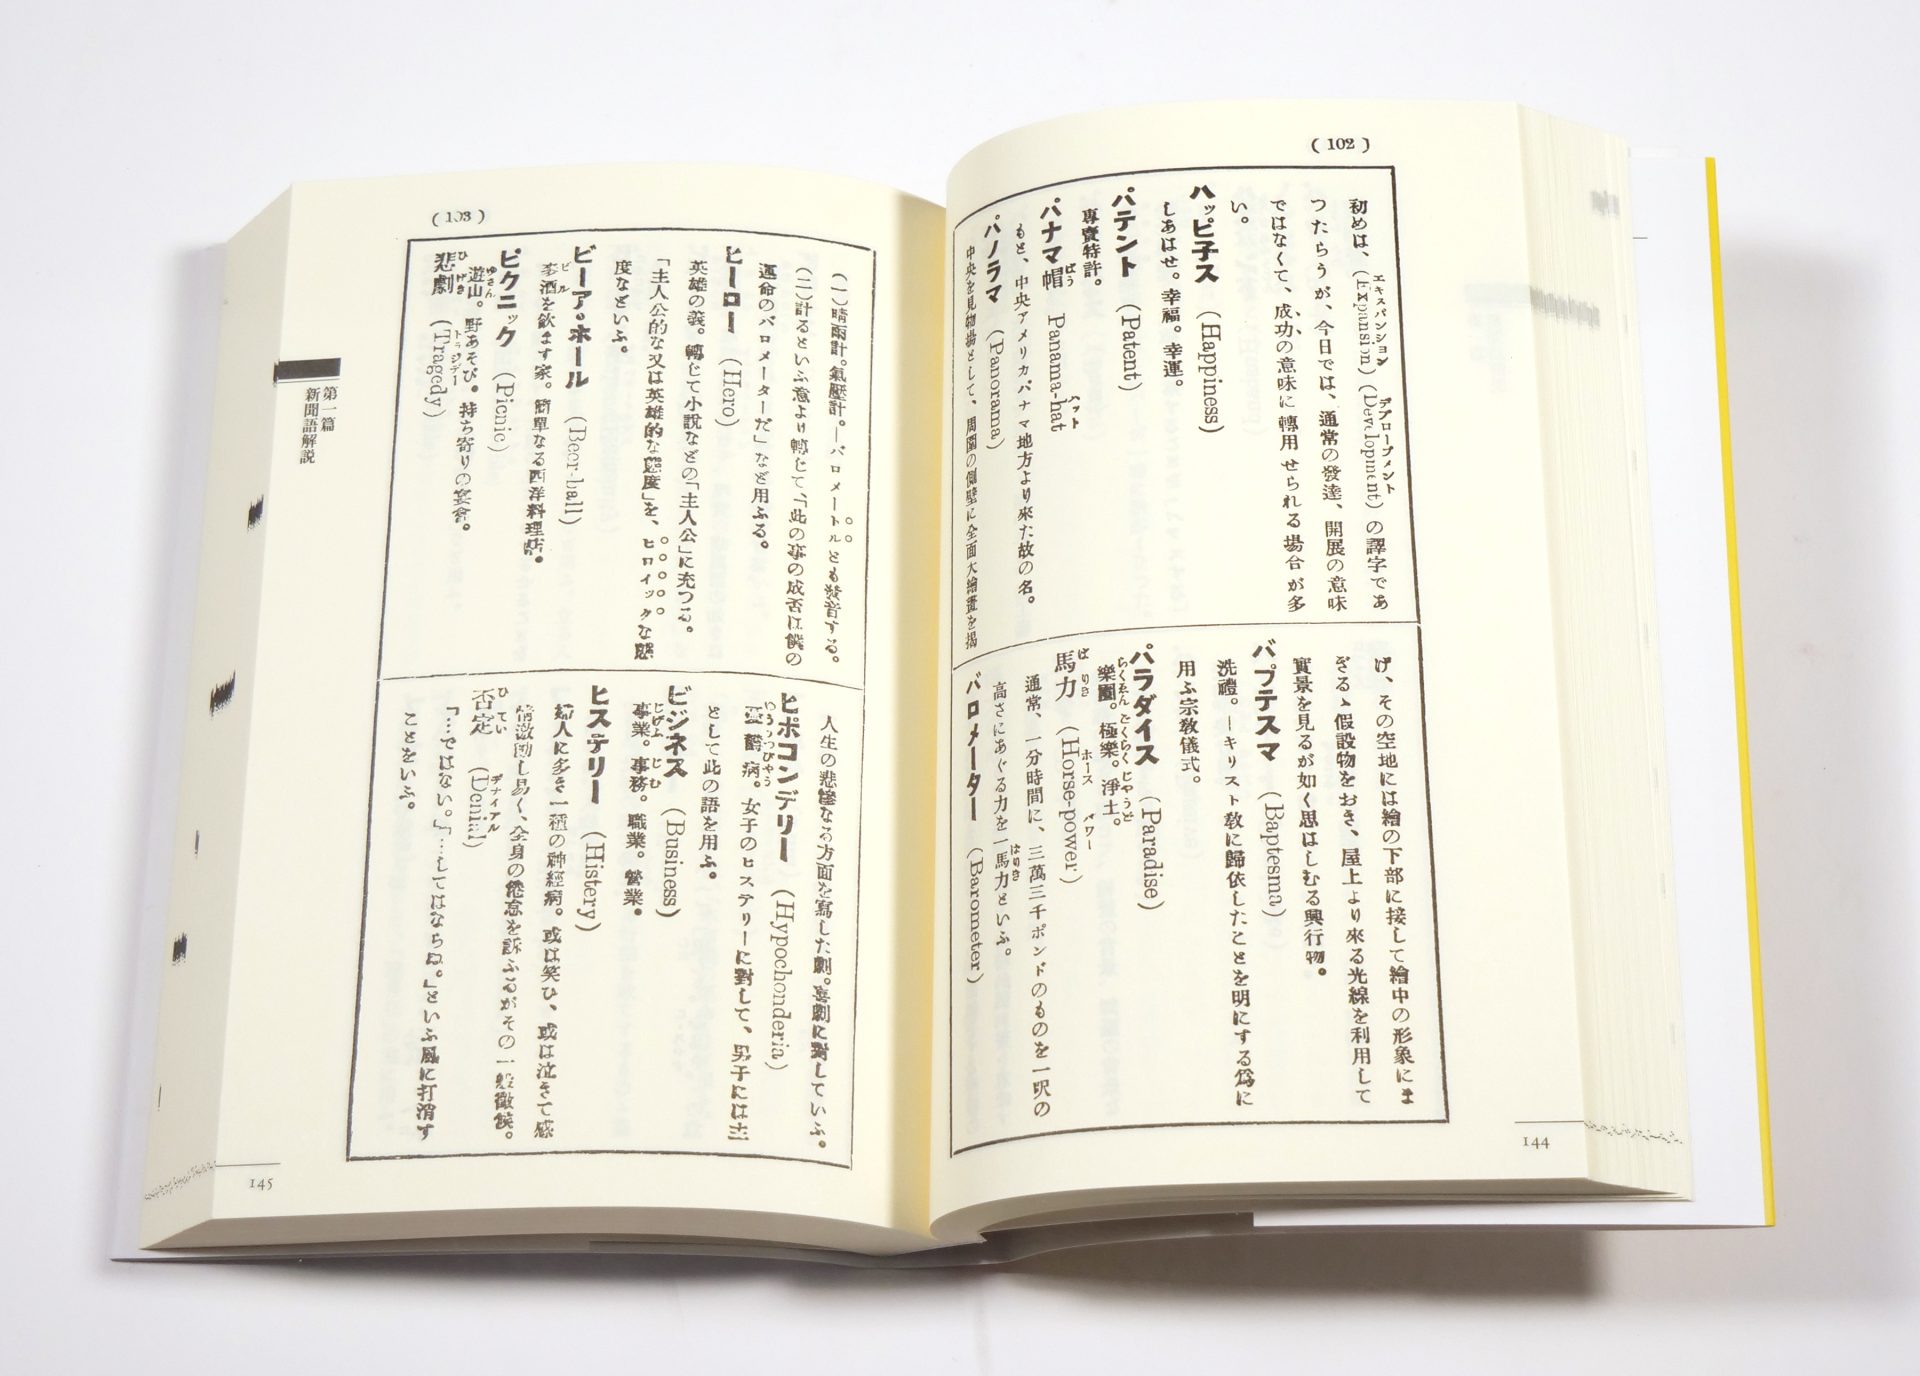 (102)
初めは、(Expansion) (Development) の譯字であ
エキスパンション
デブロープメント
つたらうが、今日では、通常の發達、開展の意味
ではなくて、成功の意味に轉用せられる場合が多
い。
ハッピ子ス (Happiness)
しあはせ。幸福。幸運。
パテント (Patent)
專賣特許。
パナマ帽 Panama-hat
ばう
ハット
もと、中央アメリカパナマ地方より來た故の名。
パノラマ (Panorama)
中央を見物場として、周圍の側壁に全面大繪畫を揭
げ、その空地には繪の下部に接して繪中の形象にま
ぎるゝ假設物をおき、屋上より來る光線を利用して
實景を見るが如く思はしむる興行物。
バプテスマ (Baptesma)
洗禮。—キリスト敎に歸依したことを明にする爲に
用ふ宗敎儀式。
パラダイス (Paradise)
樂園。極樂。淨土。
らくゑん ごくらく じやうど
馬力 (Horse-power)
ば りき
ホース パワー
通常、一分時間に、三萬三千ポンドのものを一呎の
高さにあぐる力を一馬力といふ。
ばりき
バロメーター (Barometer)
144
(103)
(一)晴雨計。氣壓計。—バロメートルとも發音する。
(二)計るといふ意より轉じて、「此の事の成否は僕の
運命のバロメーターだ」などと用ふる。
ヒーロー (Hero)
英雄の義。轉じて小說などの「主人公」に充つる。
「主人公的な又は英雄的な態度」を、ヒロイックな態
度などいふ。
ビーア・ホール (Beer-ball)
麥酒を飮ます家。簡單なる西洋料理店。
ビル
ピクニック (Picnic)
遊山。野あそび。持ち寄りの宴會。
ゆさん
悲劇 (Tragedy)
ひ げき
トラジデー
人生の悲慘なる方面を寫した劇。喜劇に對していふ。
ヒポコンデリー (Hypochonderia)
憂鬱病。女子のヒステリーに對して、男子には主
いううつびやう
として此の語を用ふ。
ビジネス (Business)
事業。事務。職業。營業。
じげふ じむ
ヒステリー (Histery)
婦人に多き一種の神經病。或は笑ひ、或は泣きて感
情激動し易く、全身の倦怠を訴ふるがその一般徵候。
否定 (Denial)
ひ てい
ディナイアル
「…ではない。」「…してはならぬ。」といふ風に打消す
ことをいふ。
第一篇
新聞語解説
145